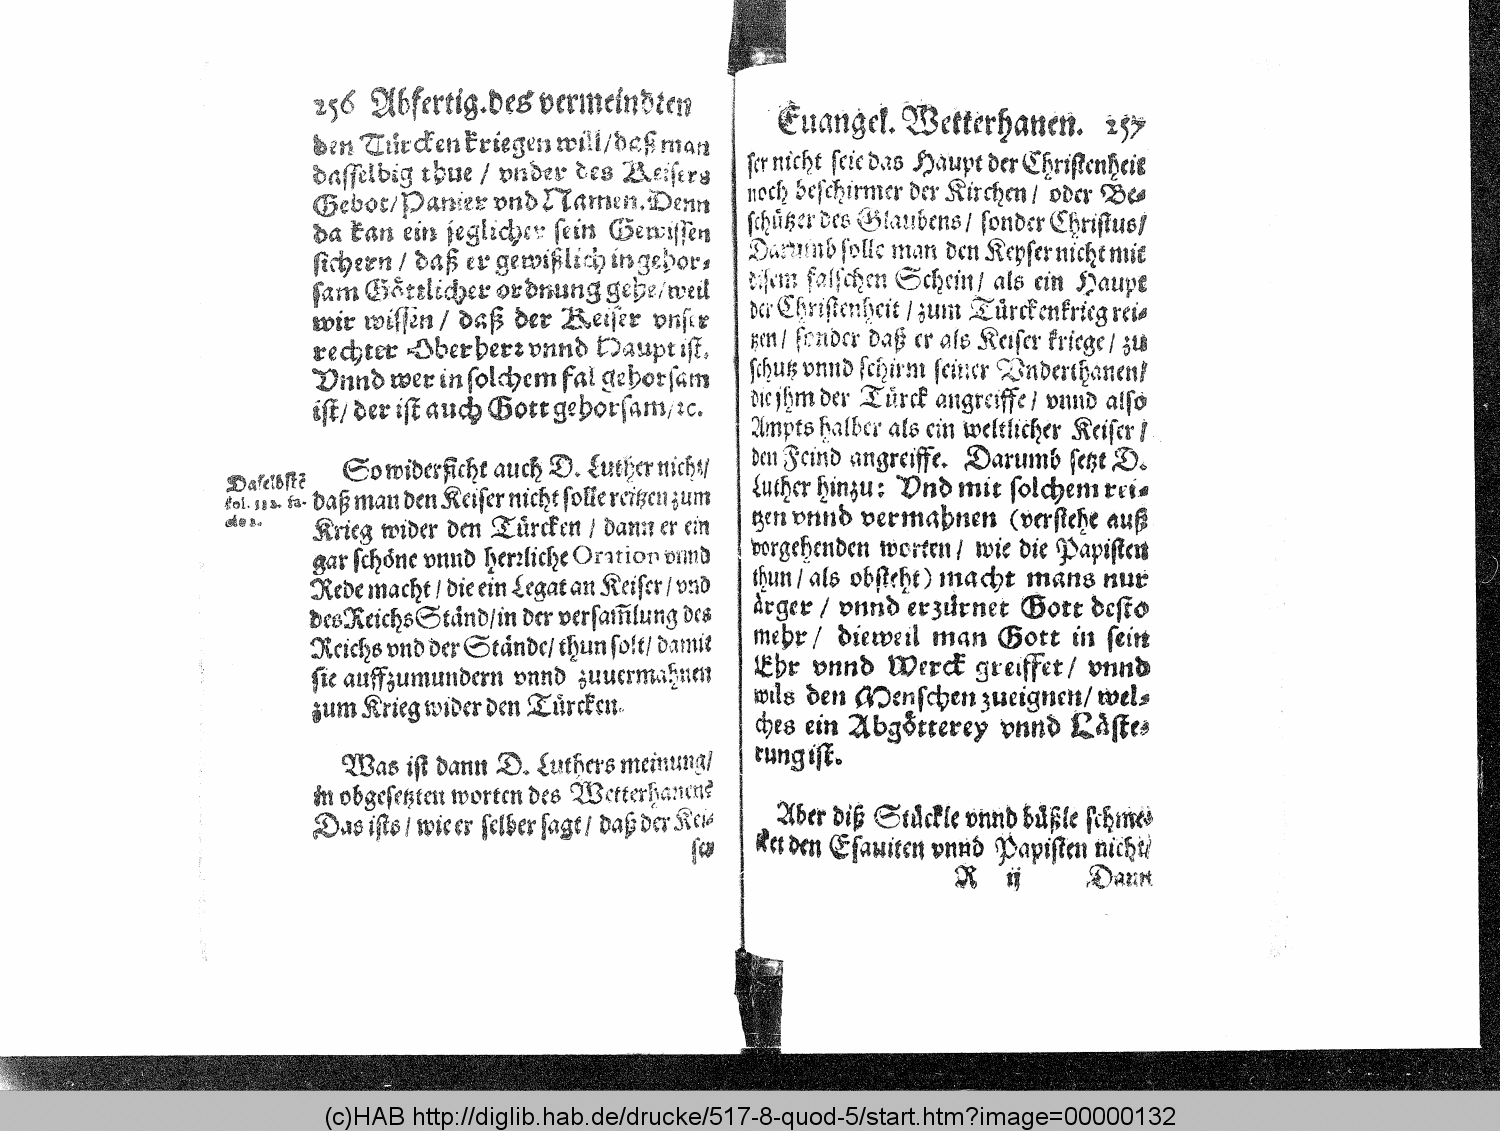 256 Abfertig. des vermeindten
den Türcken kriegen will/ daß man
dasselbig thue / vnder des Keisers
Gebot/ Panier vnd Namen. Denn
da kan ein jeglicher sein Gewissen
sichern / daß er gewißlich in gehor-
sam Göttlicher ordnung gehe/ weil
wir wissen / daß der Keiser vnser
rechter Oberherr vnnd Haupt ist.
Vnnd wer in solchem fal gehorsam
ist/ der ist auch Gott gehorsam/ ꝛc.
So widerficht auch D. Luther nicht/
Daselbst
fol. fa-
daß man den Keiser nicht solle reitzen zum
Krieg wider den Türcken / dann er ein
gar schöne vnnd herrliche Oration vnnd
Rede macht / die ein Legat an Keiser / vnd
des Reichs Ständ/ in der versam̃lung des
Reichs vnd der Stände/ thun solt/ damit
sie auffzumundern vnnd zuuermahnen
zum Krieg wider den Türcken.
Was ist dann D. Luthers meinung/
in obgesetzten worten des Wetterhanens?
Das ists / wie er selber sagt / daß der Kei-
ser
Euangel. Wetterhanen. 257
ser nicht seie das Haupt der Christenheit
noch beschirmer der Kirchen / oder Be-
schützer des Glaubens / sonder Christus/
Darumb solle man den Keyser nicht mit
disem falschen Schein / als ein Haupt
der Christenheit / zum Türckenkrieg rei-
tzen / sonder daß er als Keiser kriege / zu
schutz vnnd schirm seiner Vnderthanen/
die jhm der Türck angreiffe / vnnd also
Ampts halber als ein weltlicher Keiser /
den Feind angreiffe. Darumb setzt D.
Luther hinzu: Vnd mit solchem rei-
tzen vnnd vermahnen (verstehe auß
vorgehenden worten / wie die Papisten
thun / als obsteht) macht mans nur
ärger / vnnd erzürnet Gott desto
mehr / dieweil man Gott in sein
Ehr vnnd Werck greiffet / vnnd
wils den Menschen zueignen/ wel-
ches ein Abgötterey vnnd Läste-
rung ist.
Aber diß Stückle vnnd büßle schme-
ket den Esauiten vnnd Papisten nicht/
R ij Dann
(c)HAB http://diglib.hab.de/drucke/517-8-quod-5/start.htm?image=00000132